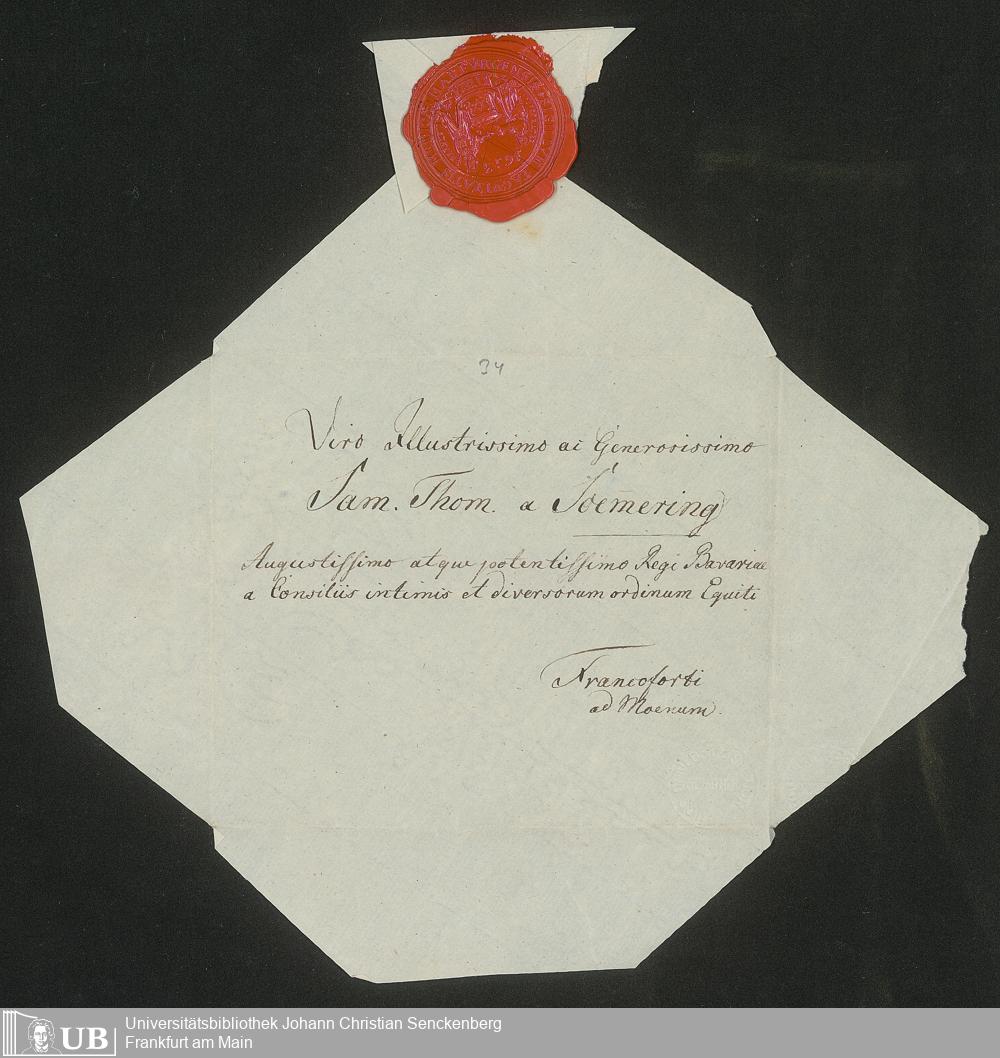 34
Viro Illustrissimo ac Generosissimo
Sam. Thom. a Soem̅ering
Augustissimo atque potentissimo Regi Bavariae
a Consiliis intimis et diversorum ordinum Equiti
Francoforti
ad Moenum.
UB
Universitätsbibliothek Johann Christian Senckenberg
Frankfurt am Main